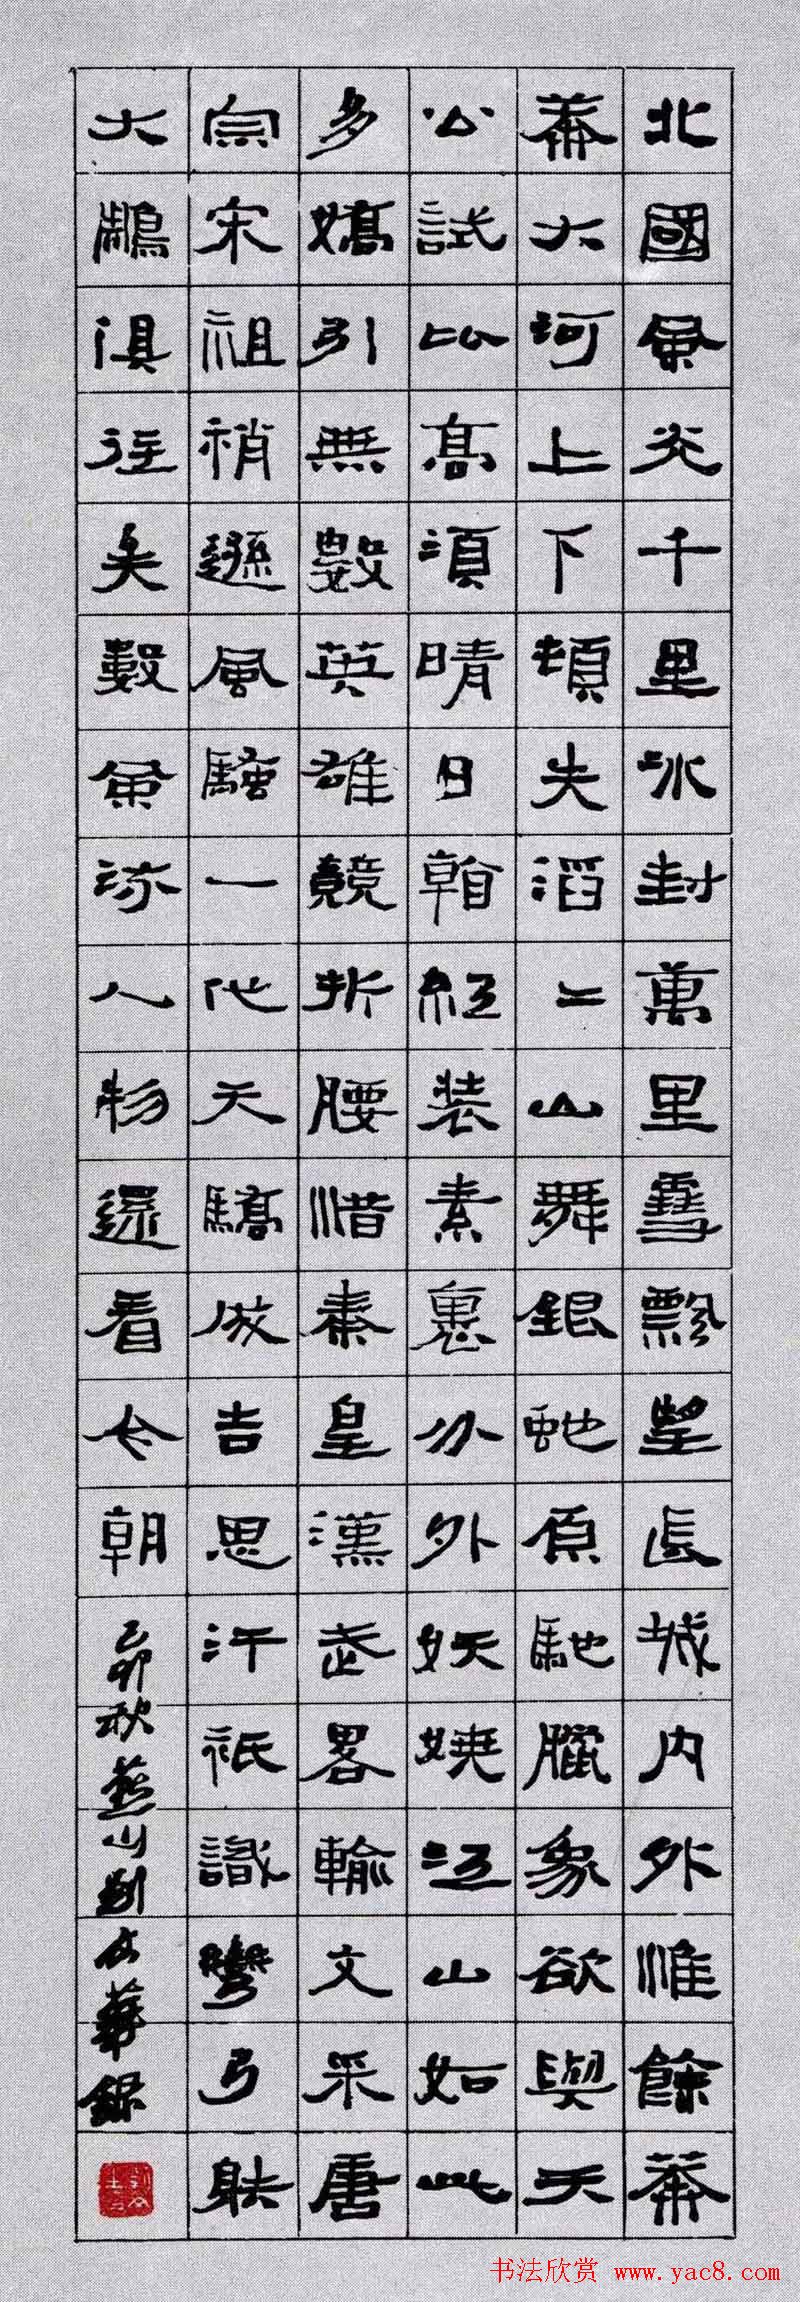 北國風光千里冰封萬里雪飄望長城內外惟餘莽
莽大河上下頓失滔二山舞銀蛇原馳臘象欲與天
公試比高須晴日看紅裝素裹分外妖嬈江山如此
多嬌引無數英雄競折腰惜秦皇漢武畧輸文采唐
宗宋祖稍遜風騷一代天驕成吉思汗祇識彎弓射
大鵰俱往矣數風流人物還看今朝
己卯秋燕山劉文華錄
书法欣赏 www.yac8.com